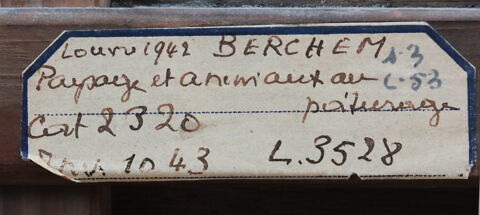 Louvre 1942 BERCHEM A-3
Paysage et animaux au L-53
pâturage
Cat 2320
Inv. 1043 L. 3528